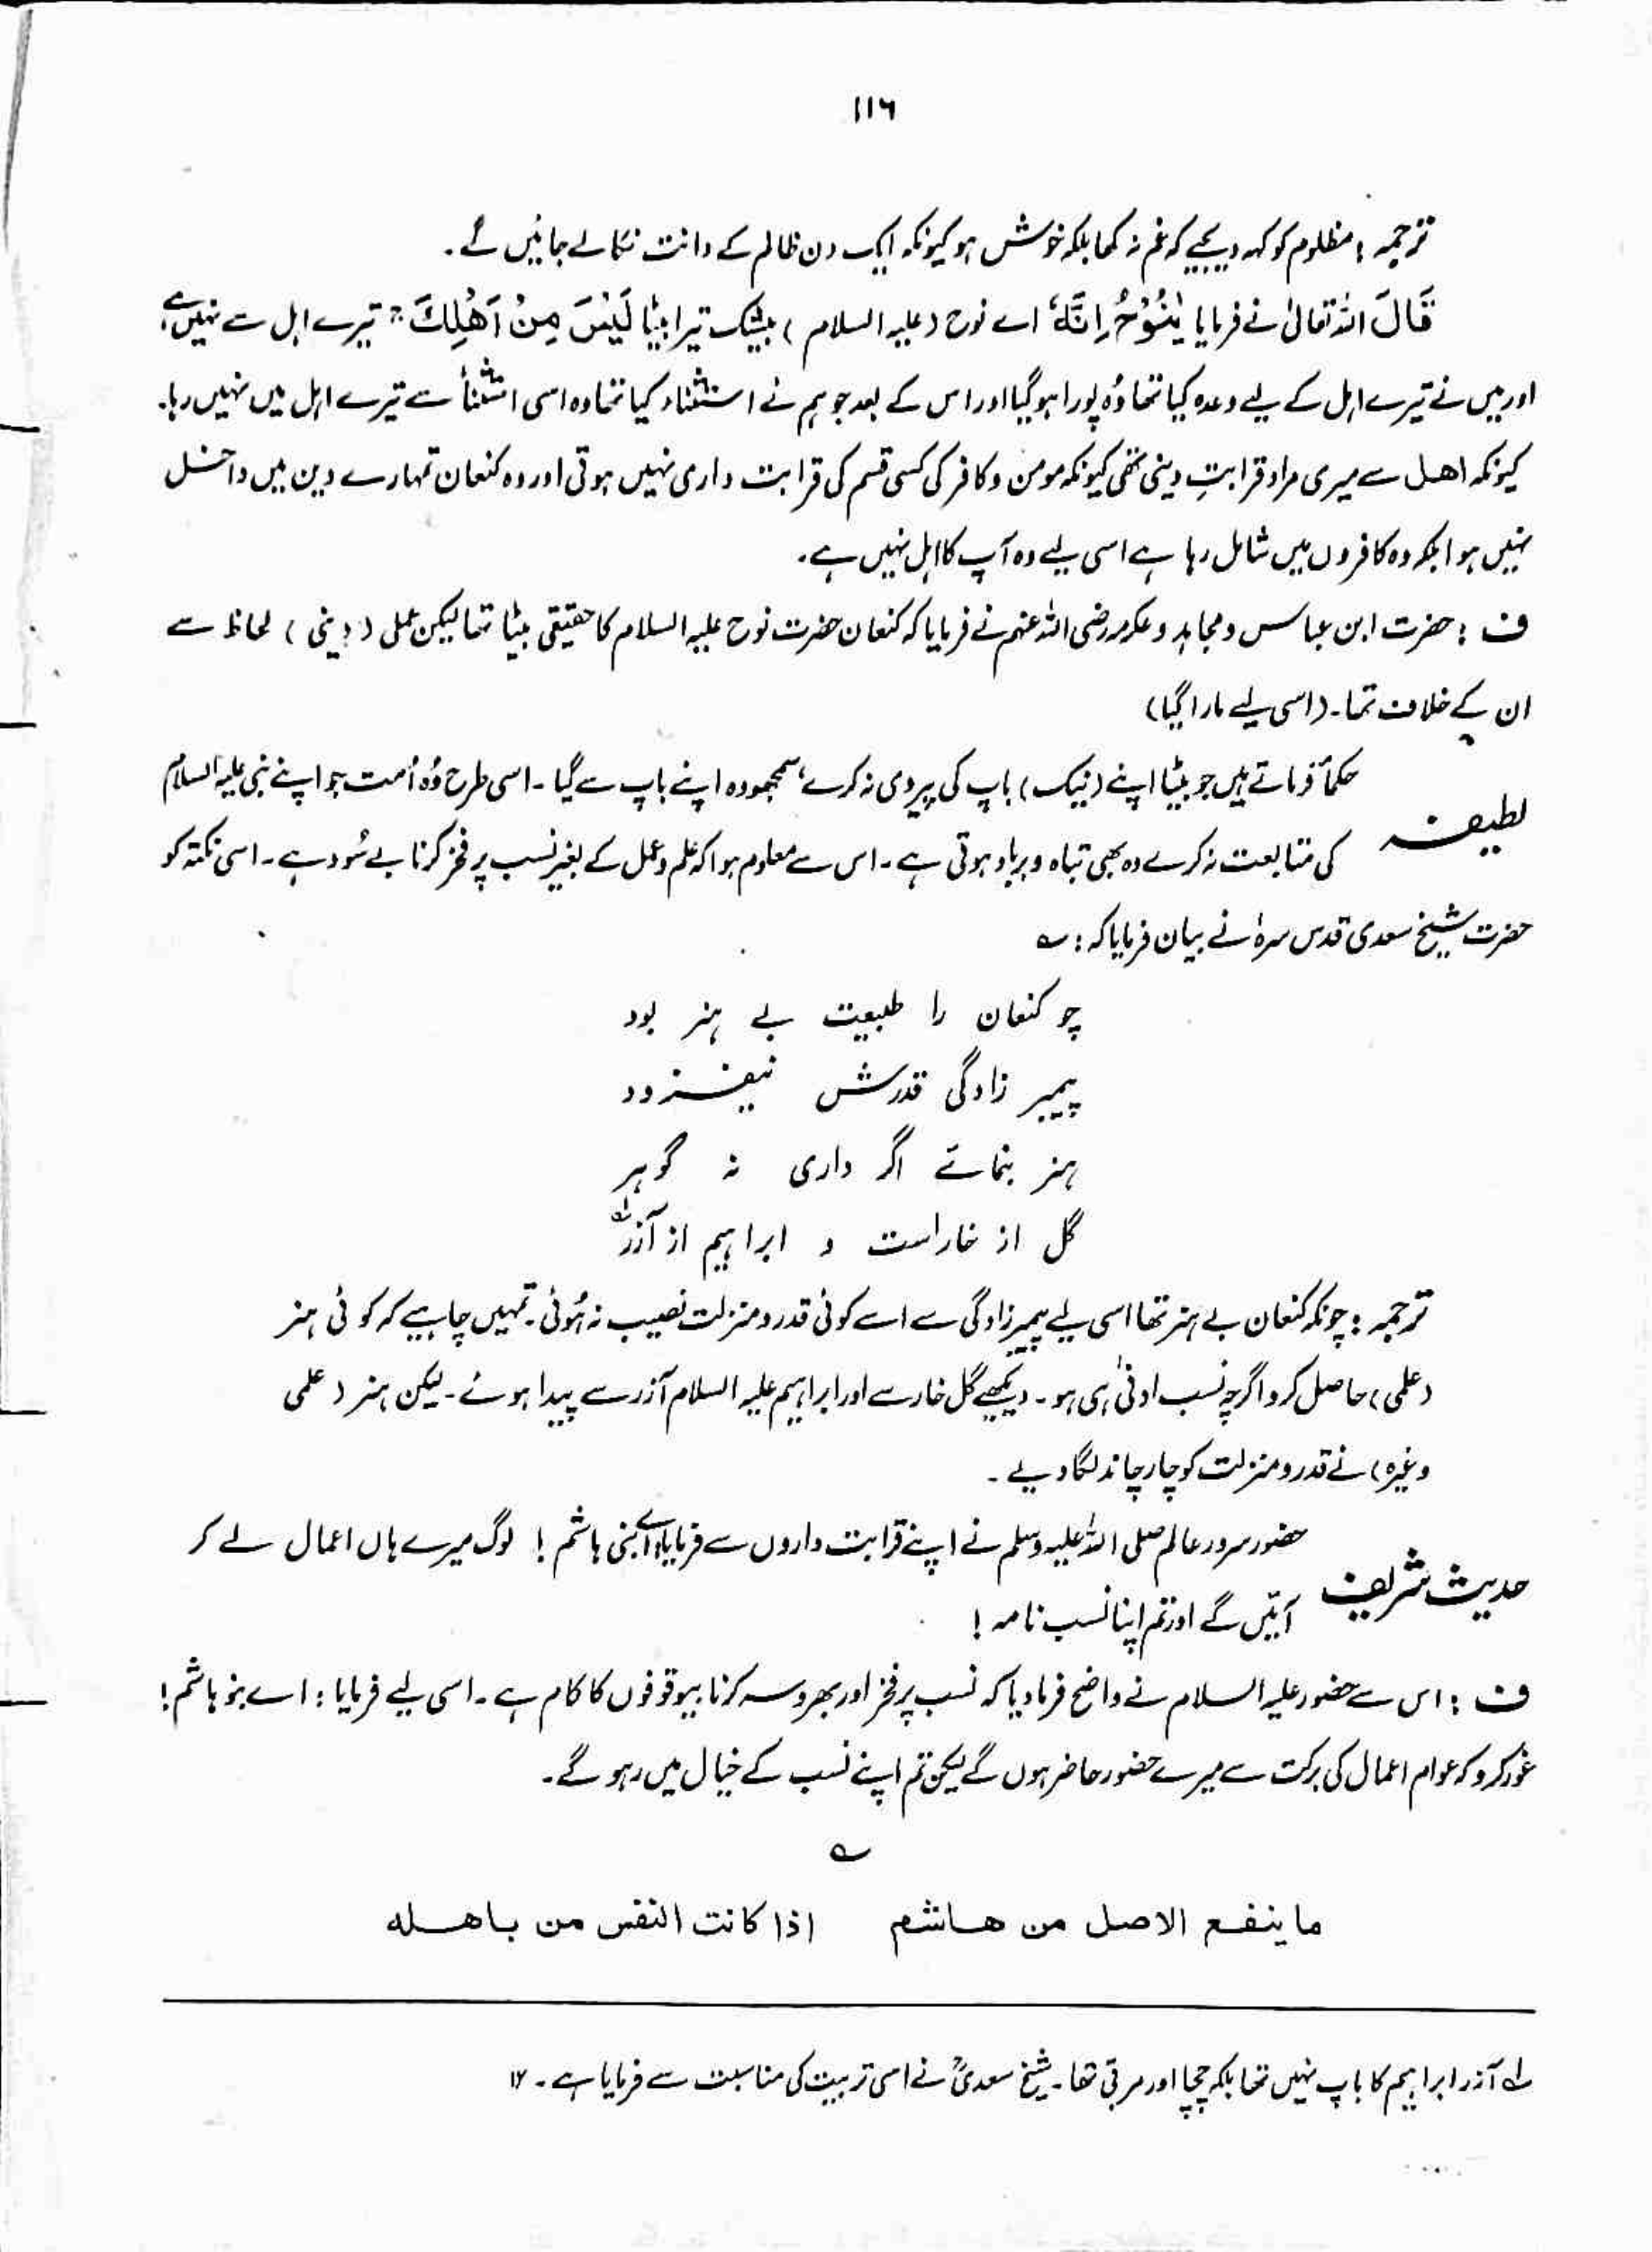 ۱۱۶
ترجمہ : مظلوم کو کہہ دیجیے کہ غم نہ کھا بلکہ خوش ہو کیونکہ ایک دن ظالم کے دانت نکالے جائیں گے۔
قَالَ اللہ تعالیٰ نے فرمایا یٰنُوْحُ اِنَّهٗ اے نوح (علیہ السلام) بیشک تیرا بیٹا لَیْسَ مِنْ اَهْلِكَ ج تیرے اہل سے نہیں ہے،
اور میں نے تیرے اہل کے لیے وعدہ کیا تھا وُہ پورا ہو گیا اور اس کے بعد جو ہم نے استثناء کیا تھا وہ اسی استثنأ سے تیرے اہل میں نہیں رہا۔
کیونکہ اھل سے میری مراد قرابتِ دینی تھی کیونکہ مومن و کافر کی کسی قسم کی قرابت داری نہیں ہوتی اور وہ کنعان تمہارے دین میں داخل
نہیں ہوا بلکہ وہ کافروں میں شامل رہا ہے اسی لیے وہ آپ کا اہل نہیں ہے۔
ف : حضرت ابن عباس و مجاہد و عکرمہ رضی اللہ عنہم نے فرمایا کہ کنعان حضرت نوح علیہ السلام کا حقیقی بیٹا تھا لیکن عملی (دینی) لحاظ سے
ان کے خلاف تھا۔ (اسی لیے مارا گیا)
لطیفہ حکمأ فرماتے ہیں جو بیٹا اپنے (نیک) باپ کی پیروی نہ کرے، سمجھو وہ اپنے باپ سے گیا۔ اسی طرح وُہ اُمت جو اپنے نبی علیہ السلام
کی متابعت نہ کرے وہ بھی تباہ و برباد ہوتی ہے۔ اس سے معلوم ہوا کہ علم و عمل کے بغیر نسب پر فخر کرنا بے سُود ہے۔ اسی نکتہ کو
حضرت شیخ سعدی قدس سرہٗ نے بیان فرمایا کہ : ؎
چو کنعان را طبیعت بے ہنر بود
پیمبر زادگی قدرش نیفزود
ہنر بنمائے اگر داری نہ گوہر
گل از خار است و ابراہیم از آزر لہ
ترجمہ : چونکہ کنعان بے ہنر تھا اسی لیے پیمبر زادگی سے اسے کوئی قدر و منزلت نصیب نہ ہُوئی۔ تمہیں چاہیے کہ کوئی ہنر
(علمی) حاصل کرو اگرچہ نسب ادنیٰ ہی ہو۔ دیکھیے گل خار سے اور ابراہیم علیہ السلام آزر سے پیدا ہوئے۔ لیکن ہنر (علمی
وغیرہ) نے قدر و منزلت کو چار چاند لگا دیے۔
حدیث شریف حضور سرور عالم صلی اللہ علیہ وسلم نے اپنے قرابت داروں سے فرمایا اے بنی ہاشم ! لوگ میرے ہاں اعمال لے کر
آئیں گے اور تم اپنا نسب نامہ !
ف : اس سے حضور علیہ السلام نے واضح فرما دیا کہ نسب پر فخر اور بھروسہ کرنا بیوقوفوں کا کام ہے۔ اسی لیے فرمایا : اے بنو ہاشم !
غور کرو کہ عوام اعمال کی برکت سے میرے حضور حاضر ہوں گے لیکن تم اپنے نسب کے خیال میں رہو گے۔
؎
ما ینفع الاصل من هاشم اذا کانت النفس من باهله
لہ آزر ابراہیم کا باپ نہیں تھا بلکہ چچا اور مربّی تھا۔ شیخ سعدیؒ نے اسی تربیت کی مناسبت سے فرمایا ہے۔ ۱۲